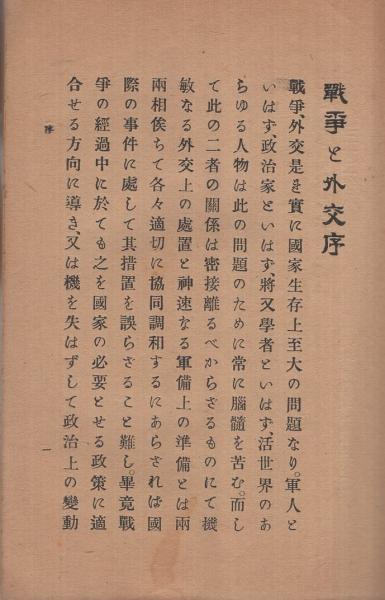 戰爭と外交序
戰爭、外交是れ實に國家生存上至大の問題なり。軍人と
いはず、政治家といはず、將又學者といはず、活世界のあ
らゆる人物は此の問題のために常に腦髓を苦む。而し
て此の二者の關係は密接離るべからざるものにて機
敏なる外交上の處置と神速なる軍備上の準備とは兩
兩相俟ちて各々適切に協同調和するにあらされば國
際の事件に處して其措置を誤らざること難し。畢竟戰
爭の經過中に於ても之を國家の必要とせる政策に適
合せる方向に導き、又は機を失はずして政治上の變動
序
一